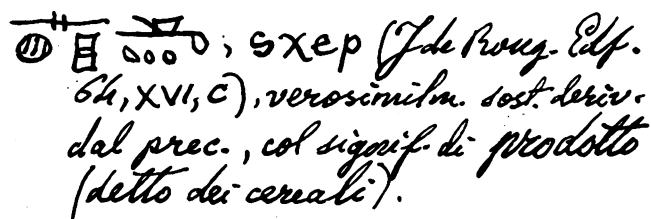 , sχep (J. de Roug. Edf.
64, XVI, c), verosimilm. sost. deriv.
dal prec., col signif. di prodotto
(detto dei cereali).